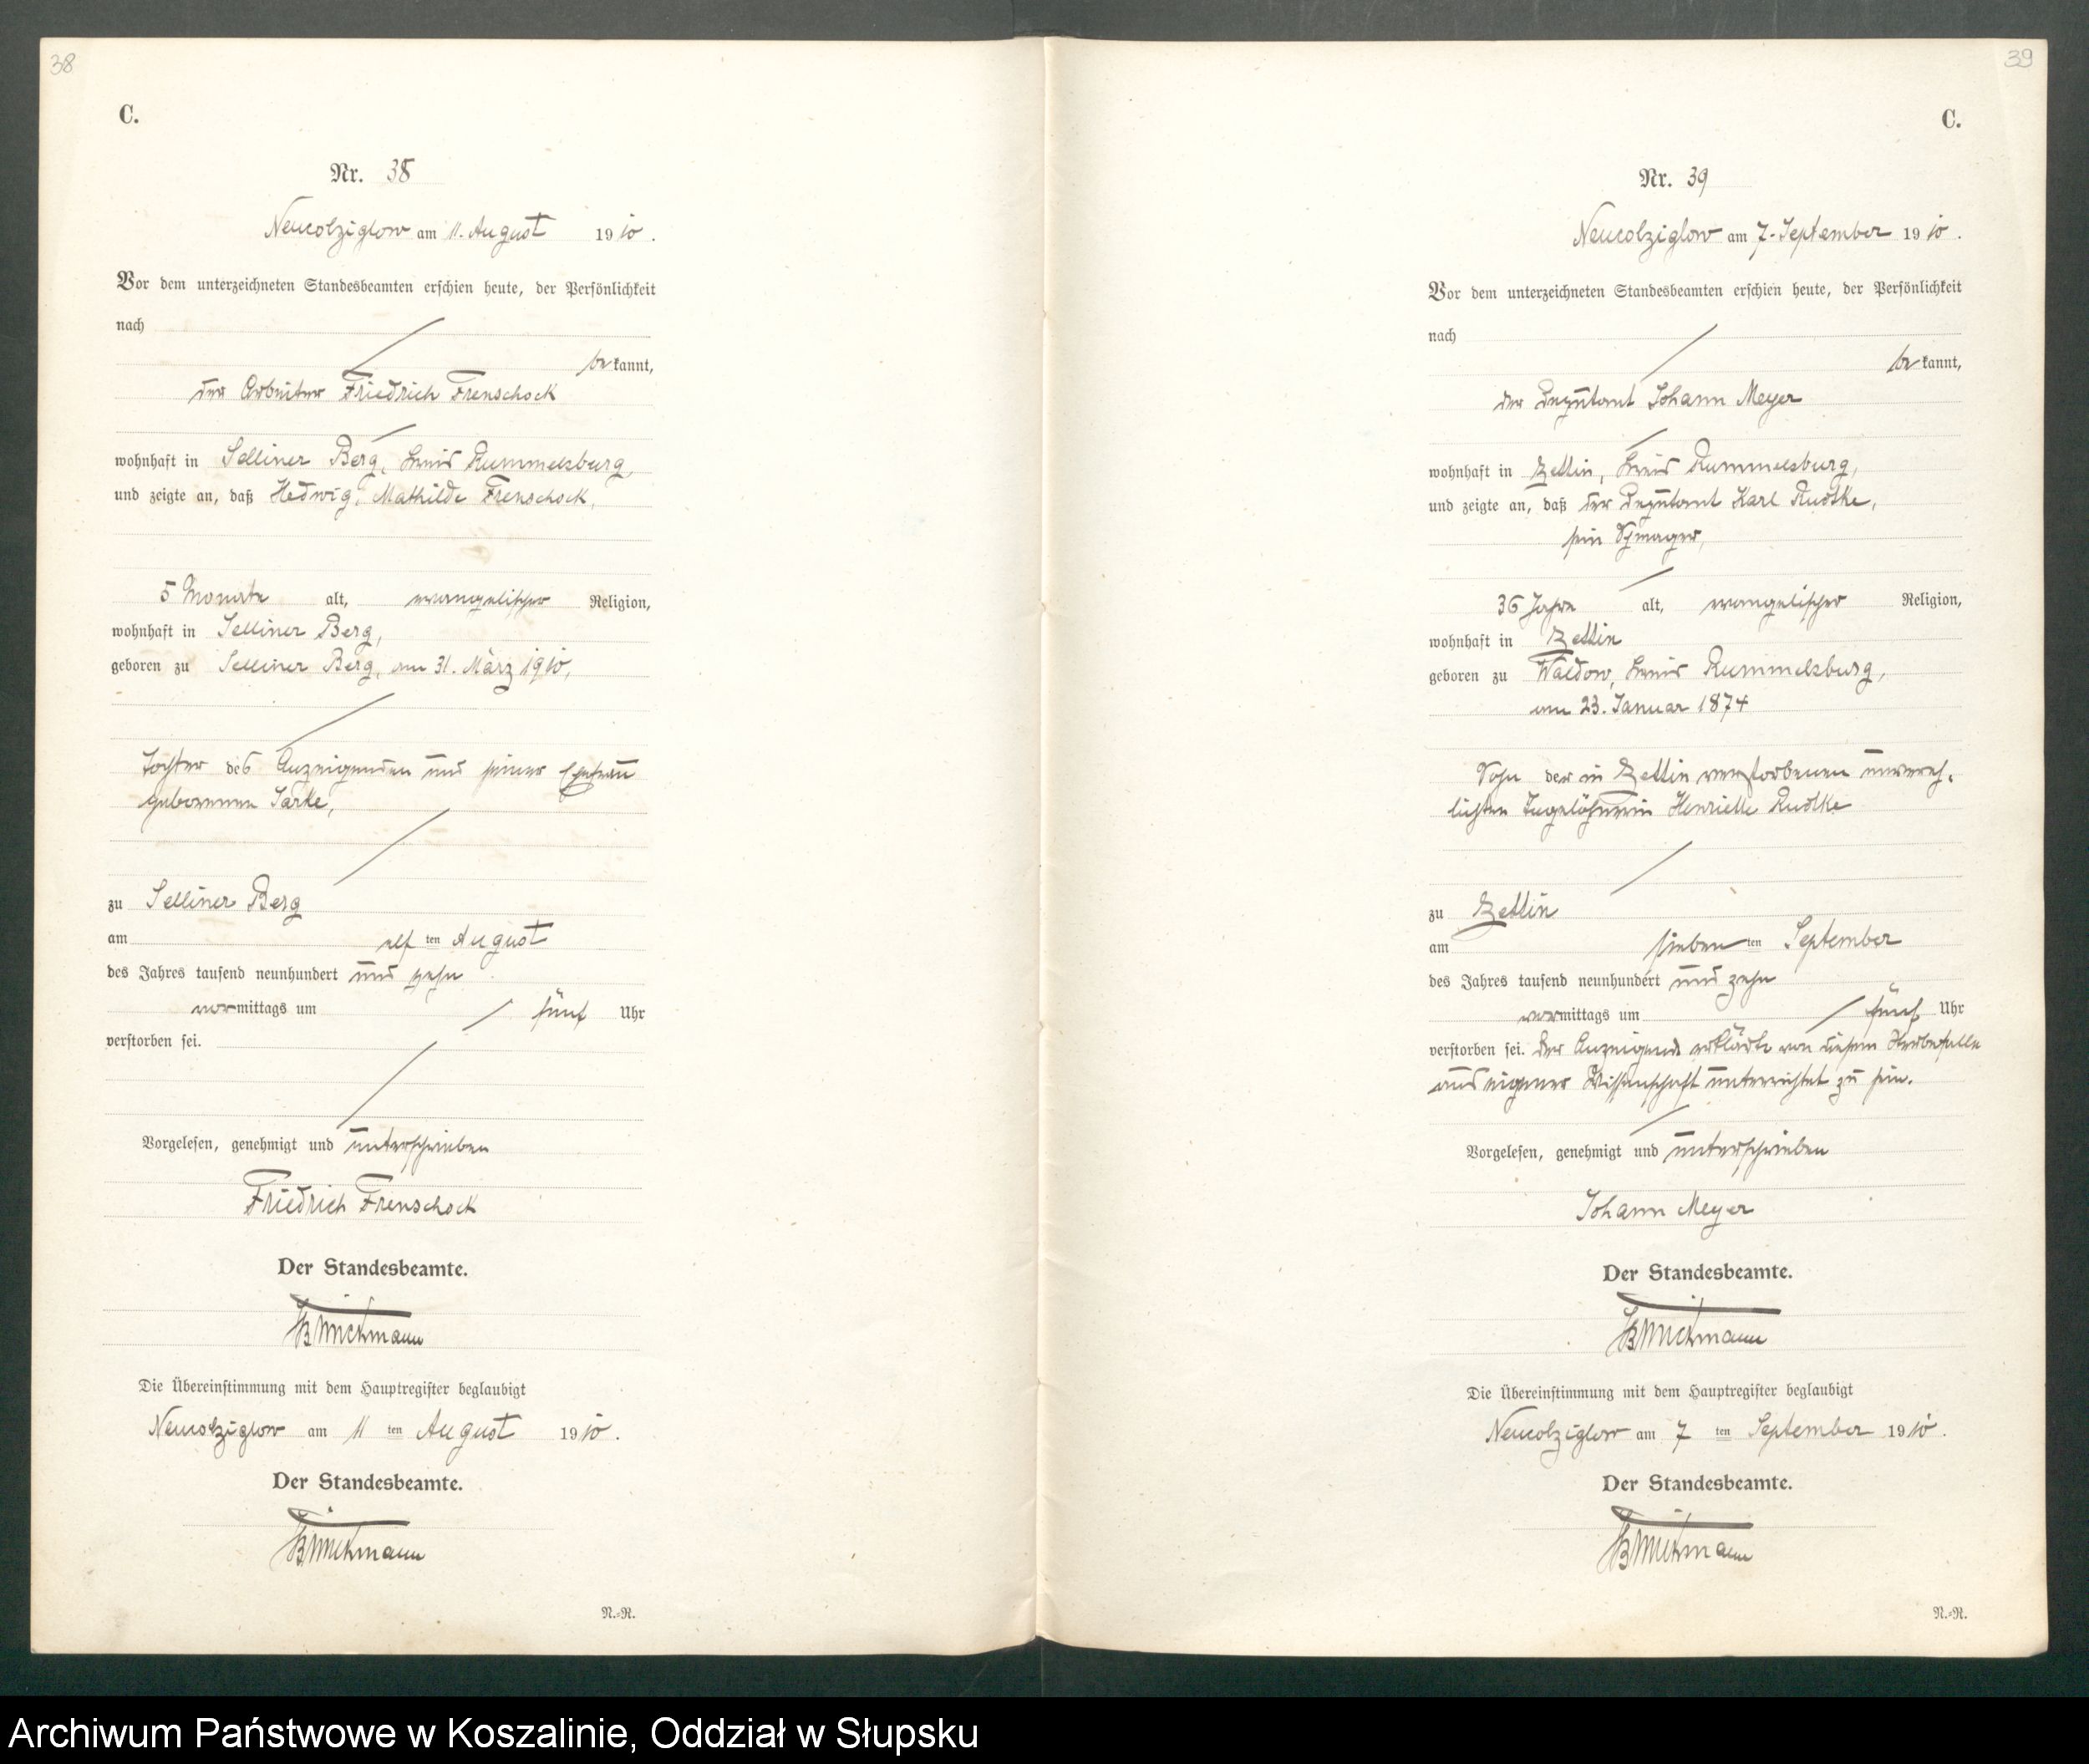 38
C.
Nr. 38
Neucolziglow am 11. August 1910.
Vor dem unterzeichneten Standesbeamten erschien heute, der Persönlichkeit
nach
bekannt,
der Arbeiter Friedrich Frenschock
wohnhaft in Selliner Berg, Kreis Rummelsburg,
und zeigte an, daß Hedwig, Mathilde Frenschock,
5 Monate alt, evangelischer Religion,
wohnhaft in Selliner Berg,
geboren zu Selliner Berg, am 31. März 1910,
Tochter des Anzeigenden und seiner Ehefrau
geborenen Jarke,
zu Selliner Berg
am elften August
des Jahres tausend neunhundert und zehn
vormittags um fünf Uhr
verstorben sei.
Vorgelesen, genehmigt und unterschrieben
Friedrich Frenschock
Der Standesbeamte.
Die Übereinstimmung mit dem Hauptregister beglaubigt
Neucolziglow am 11 ten August 1910.
Der Standesbeamte.
N.=R.
39
C.
Nr. 39
Neucolziglow am 7. September 1910.
Vor dem unterzeichneten Standesbeamten erschien heute, der Persönlichkeit
nach
bekannt,
der Deputant Johann Meyer
wohnhaft in Zettin, Kreis Rummelsburg,
und zeigte an, daß der Deputant Karl Rudtke,
sein Schwager,
36 Jahre alt, evangelischer Religion,
wohnhaft in Zettin
geboren zu Waldow, Kreis Rummelsburg,
am 23. Januar 1874
Sohn der in Zettin verstorbenen unvereh-
lichten Tagelöhnerin Henriette Rudtke
zu Zettin
am siebenten September
des Jahres tausend neunhundert und zehn
vormittags um fünf Uhr
verstorben sei. Der Anzeigende erklärte von diesem Sterbefalle
aus eigener Wissenschaft unterrichtet zu sein.
Vorgelesen, genehmigt und unterschrieben
Johann Meyer
Der Standesbeamte.
Die Übereinstimmung mit dem Hauptregister beglaubigt
Neucolziglow am 7 ten September 1910.
Der Standesbeamte.
N.=R.
Archiwum Państwowe w Koszalinie, Oddział w Słupsku